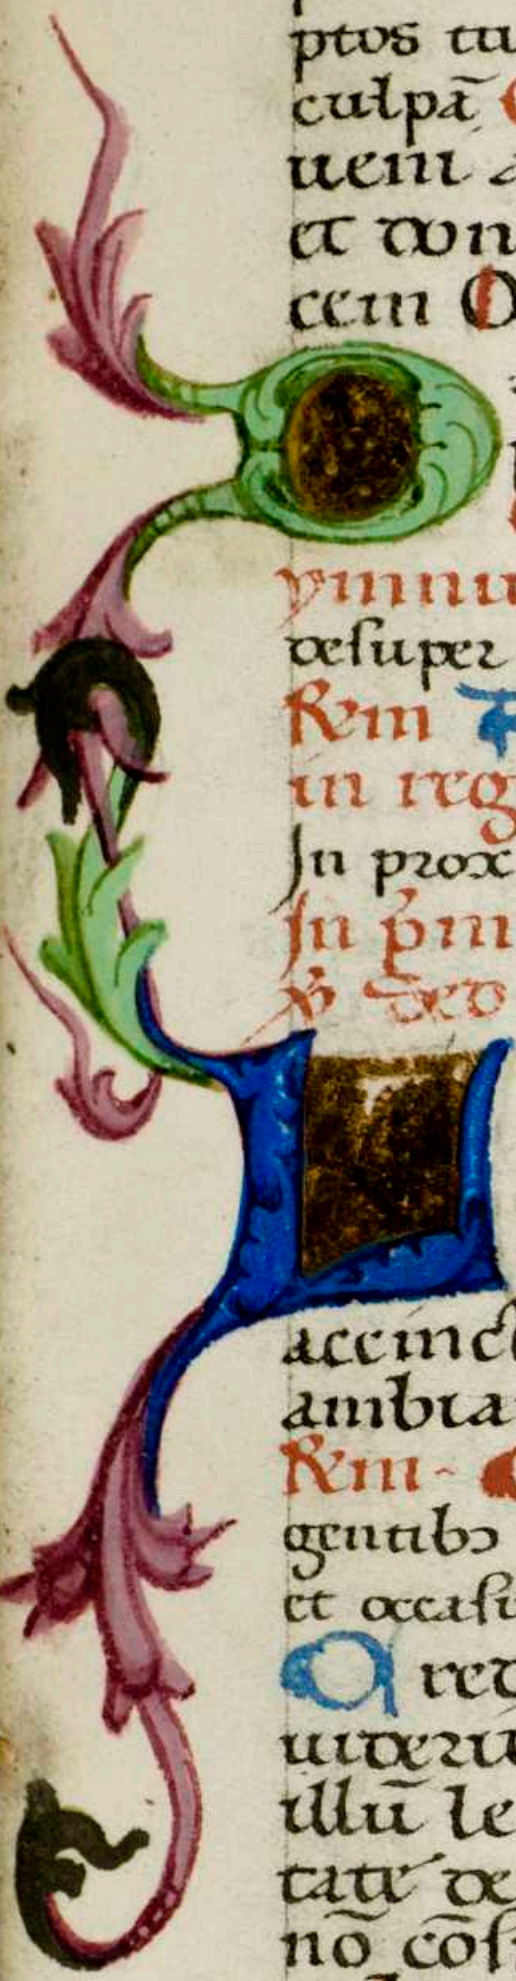 ptos tu
culpā
ueni a
et don
cem O
ymnu
desuper
Rem
in reg
In prox
In p̄m
L
accinct
ambia
Rem
gentibꝫ
et occasu
Q red
uideru
illū le
tate de
nō cōs